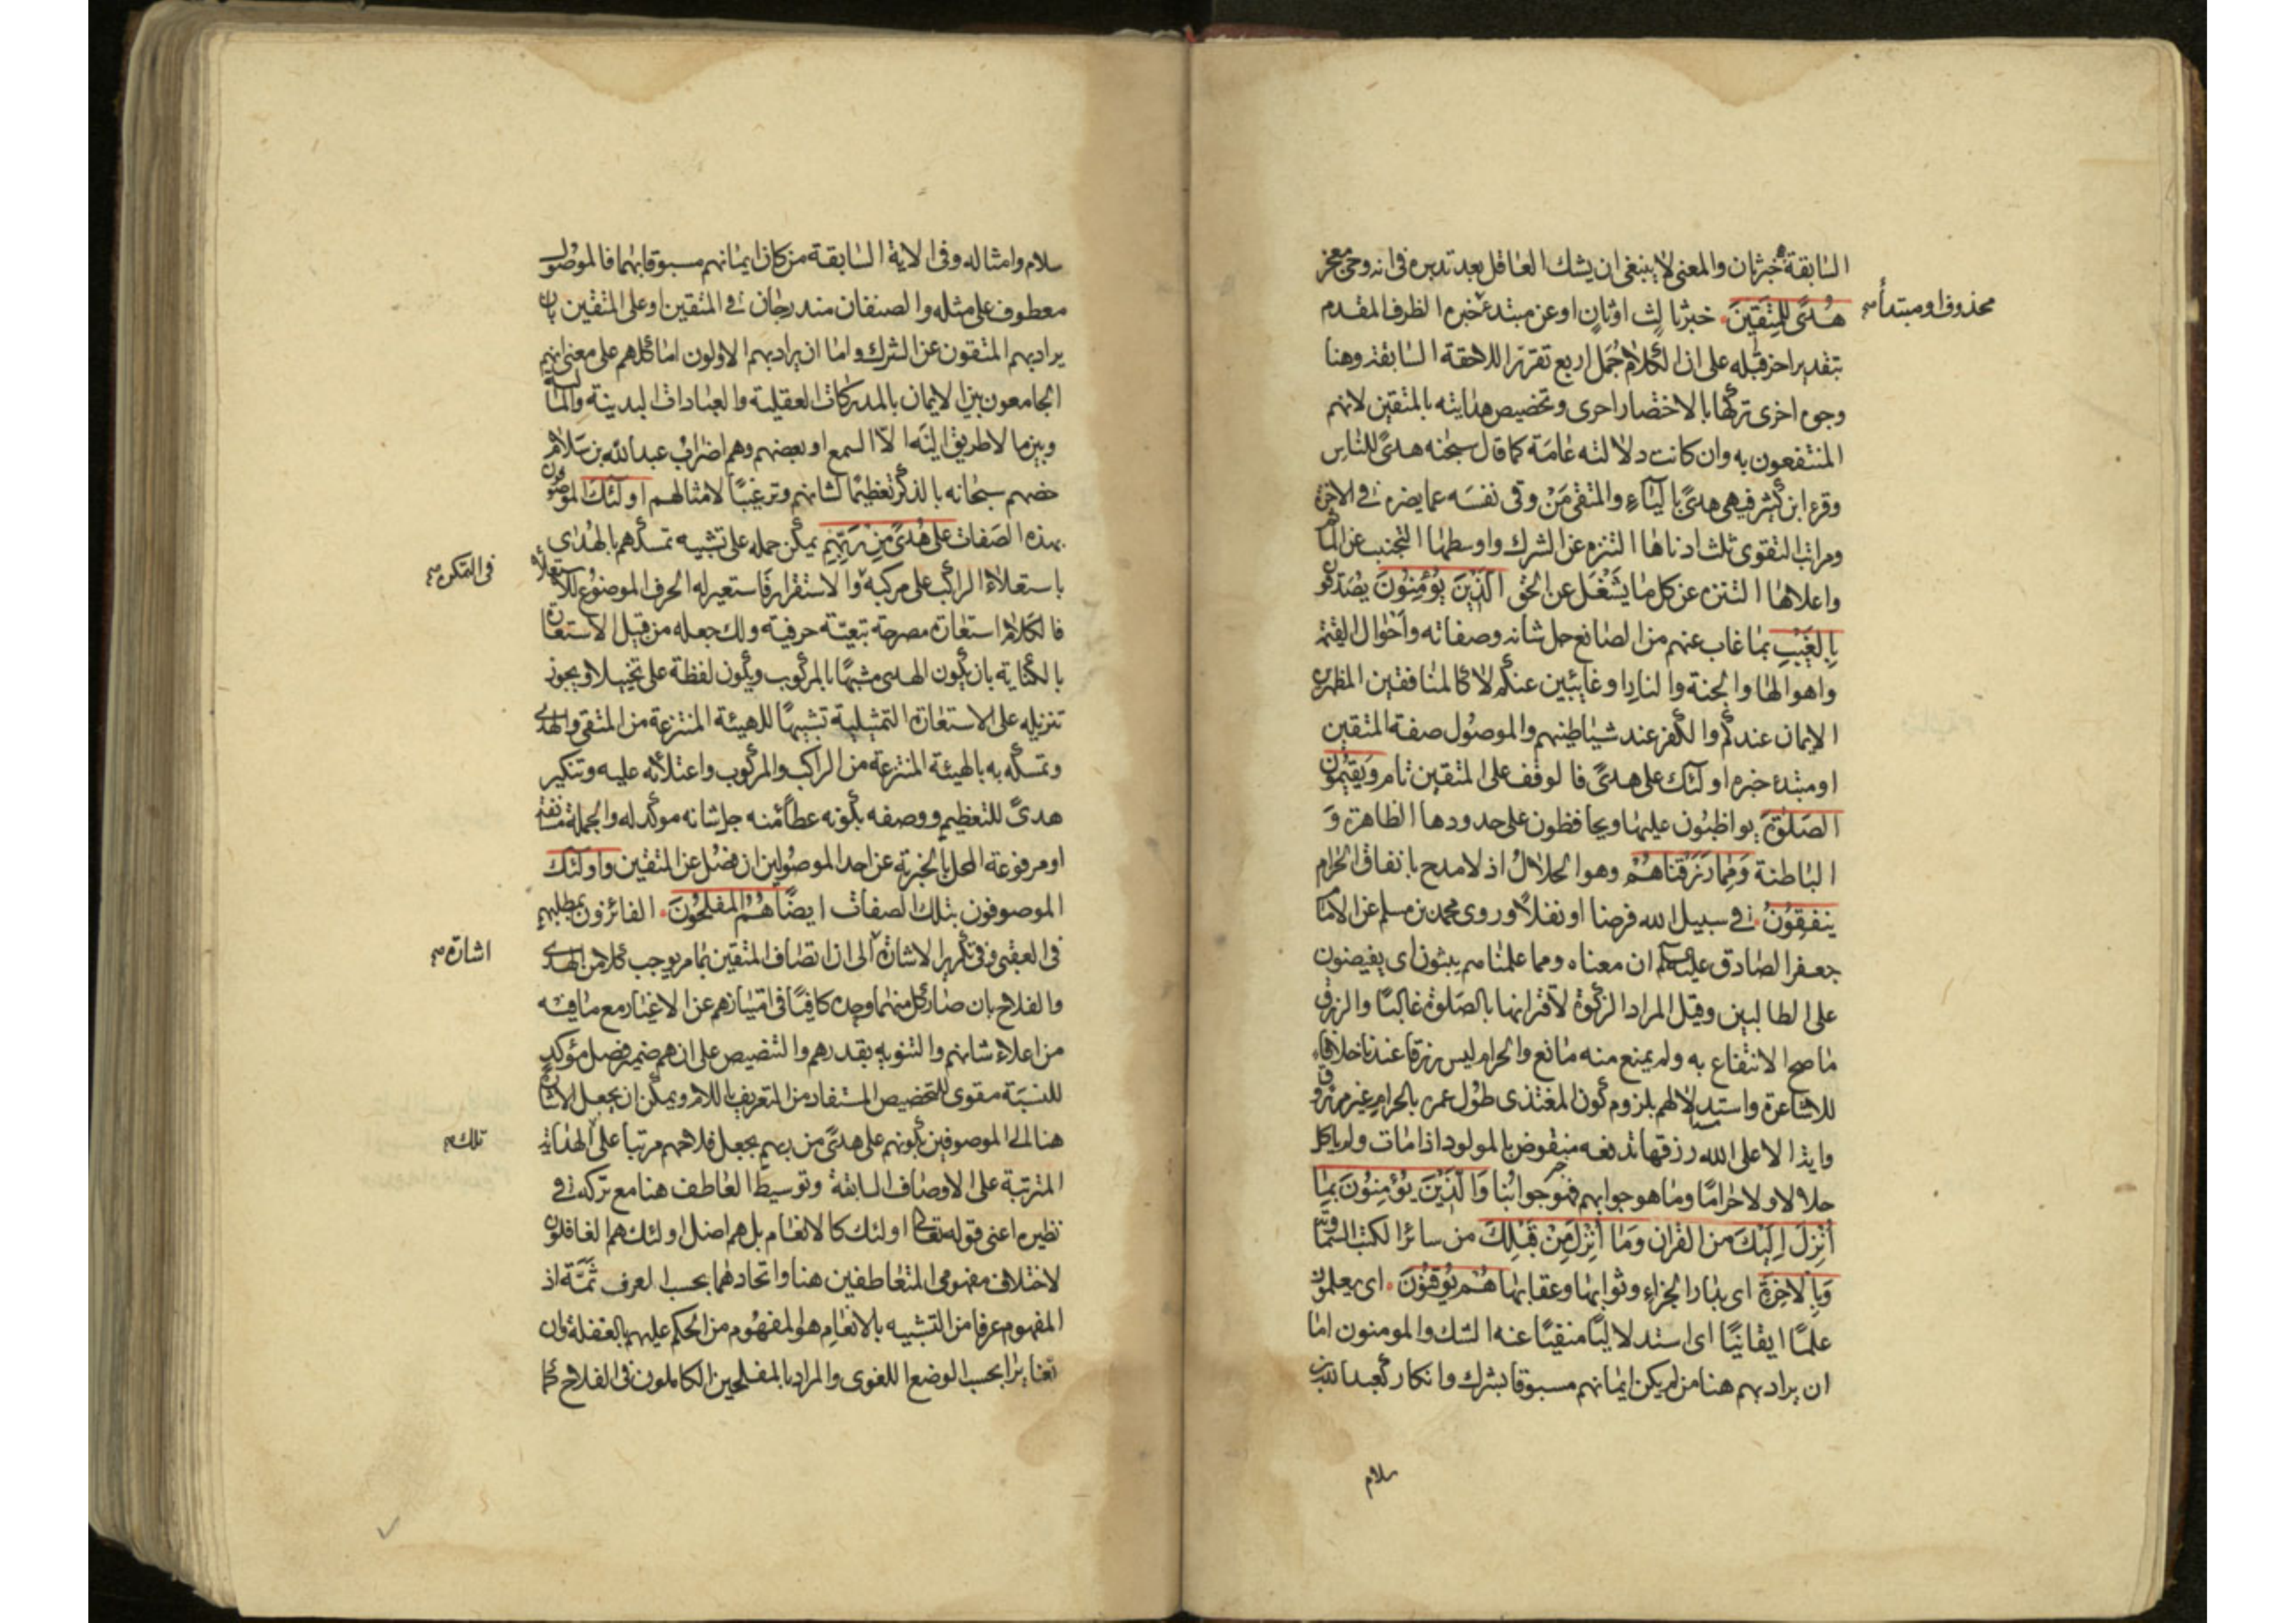 السابقة خبر ثان والمعنى لا ينبغي ان يشك العاقل بعد تدبره في انه وحي معجز
محذوف او مبتدأ صح
هُدىً لِلمُتَّقِينَ. خبر ثالث او ثان او عن مبتدء خبره الظرف المقدم
بتقدير اخر قبله على ان الكلام جمل اربع تقرر اللاحقة السابقة وهنا
وجوه اخرى تركها بالاختصار احرى وتخصيص هدايته بالمتقين لانهم
المنتفعون به وان كانت دلالته عامة كما قال سبحنه هدىً للناس
وقرء ابن كثير فيهى هدىً بالياء والمتقي مَنْ وقى نفسه عما يضره في الاخرة
ومراتب التقوى ثلث ادناها التنزه عن الشرك واوسطها التجنب عن المآثم
واعلاها التنزه عن كل ما يشغل عن الحق الَّذِينَ يُؤمِنُونَ يصدقون
بِالغَيْبِ بما غاب عنهم من الصانع جل شانه وصفاته واحوال القيمة
واهوالها والجنة والنار او غايبين عنكم لا كالمنافقين المظهرين
الايمان عندكم والكفر عند شياطينهم والموصول صفة المتقين
او مبتدء خبره اولئك على هدىً فالوقف على المتقين تام وَيُقِيمُونَ
الصَلوٰةَ يواظبون عليها ويحافظون على حدودها الظاهرة و
الباطنة وَمِمّا رَزَقْناهُمْ وهو الحلال اذ لا مدح بانفاق الحرام
يُنفِقُونَ. في سبيل الله فرضا او نفلا وروى محمد بن مسلم عن الامام
جعفر الصادق عليه السلم ان معناه ومما علمناهم يبثون اى يفيضون
على الطالبين وقيل المراد الزكوة لاقترانها بالصلوة غالبًا والرزق
ما صح الانتفاع به ولم يمنع منه مانع والحرام ليس رزقا عندنا خلافا
للاشاعرة واستدلالهم بلزوم كون المغتذى طول عمره بالحرام غير مرزوق
وايذا الا على الله رزقها تدفعه منقوض بالمولود اذا مات ولم ياكل
حلالا ولا حراما وما هو جوابهم فهو جوابنا وَالَّذِينَ يُؤمِنُونَ بِما
أُنْزِلَ اِلَيْكَ من القران وَمَا أُنْزِلَ مِنْ قَبْلِكَ من سائر الكتب السماوية
وَبِالاخِرَةِ اى بدار الجزاء وثوابها وعقابها هُمْ يُوقِنُونَ. اى يعلمون
علمًا ايقانيًا اى استدلاليًا منفيًا عنه الشك والمومنون اما
ان يراد بهم هنا من لم يكن ايمانهم مسبوقا بشرك وانكار كعبد الله بن
سلام
سلام وامثاله وفي الاية السابقة من كان ايمانهم مسبوقا بهما فالموصول
معطوف على مثله والصنفان مندرجان في المتقين او على المتقين بان
يراد بهم المتقون عن الشرك واما ان يراد بهم الاولون اما كلهم على معنى انهم
الجامعون بين الايمان بالمدركات العقلية والعبادات البدينة والمالية
وبين ما لا طريق اليه الا السمع او بعضهم وهم اضراب عبدالله بن سلام
خصهم سبحانه بالذكر تعظيما لشانهم وترغيبًا لامثالهم اولٰئك الموصوفون
بهذه الصفات عَلى هُدىً مِنْ رَبِّهِم يمكن حمله على تشبيه تمسكهم بالهدى
باستعلاء الراكب على مركبه والاستقرار فاستعير له الحرف الموضوع للاستعلاء
في التمكن صح
فالكلام استعارة مصرحة تبعية حرفية ولك جعله من قبيل الاستعارة
بالكناية بان يكون الهدى مشبهًا بالمركوب ويكون لفظة على تخييلا ويجوز
تنزيله على الاستعارة التمثيلية تشبيهًا للهيئة المنتزعة من المتقي والهدى
وتمسكه به بالهيئة المنتزعة من الراكب والمركوب واعتلائه عليه وتنكير
هدىً للتعظيم ووصفه بكونه عطاء منه جل شانه موكد له والجملة مستانفة
او مرفوعة المحل بالخبرية عن احد الموصولين ان فصل عن المتقين وَاولٰئِكَ
الموصوفون بتلك الصفات ايضًا هُمُ المُفلِحُونَ. الفائزون بمطلبهم
في العقبى وفي تكرير الاشارة الى ان اتصاف المتقين بما مر يوجب كلا من الهدى
اشارة صح
والفلاح بان صار كل منهما وحده كافيًا في امتيازهم عن الاغيار مع ما فيه
من اعلاء شانهم والتنويه بقدرهم والتنصيص على ان هم ضمير فصل مؤكد
للنسبة مقوى للتخصيص المستفاد من التعريف باللام ويمكن ان يجعل الاشارة
هنا الى الموصوفين بكونهم على هدىً من ربهم بجعل فلاحهم مرتبا على الهداية
تلك صح
المترتبة على الاوصاف السابقة وتوسيط العاطف هنا مع تركه في
نظيره اعنى قوله تعالى اولئك كالانعام بل هم اضل اولئك هم الغافلون
لاختلاف مفهومى المتعاطفين هنا واتحادهما بحسب العرف ثَمَّة اذ
المفهوم عرفا من التشبيه بالانعام هو المفهوم من الحكم عليهم بالغفلة وان
تغايرا بحسب الوضع اللغوى والمراد بالمفلحين الكاملون في الفلاح كما